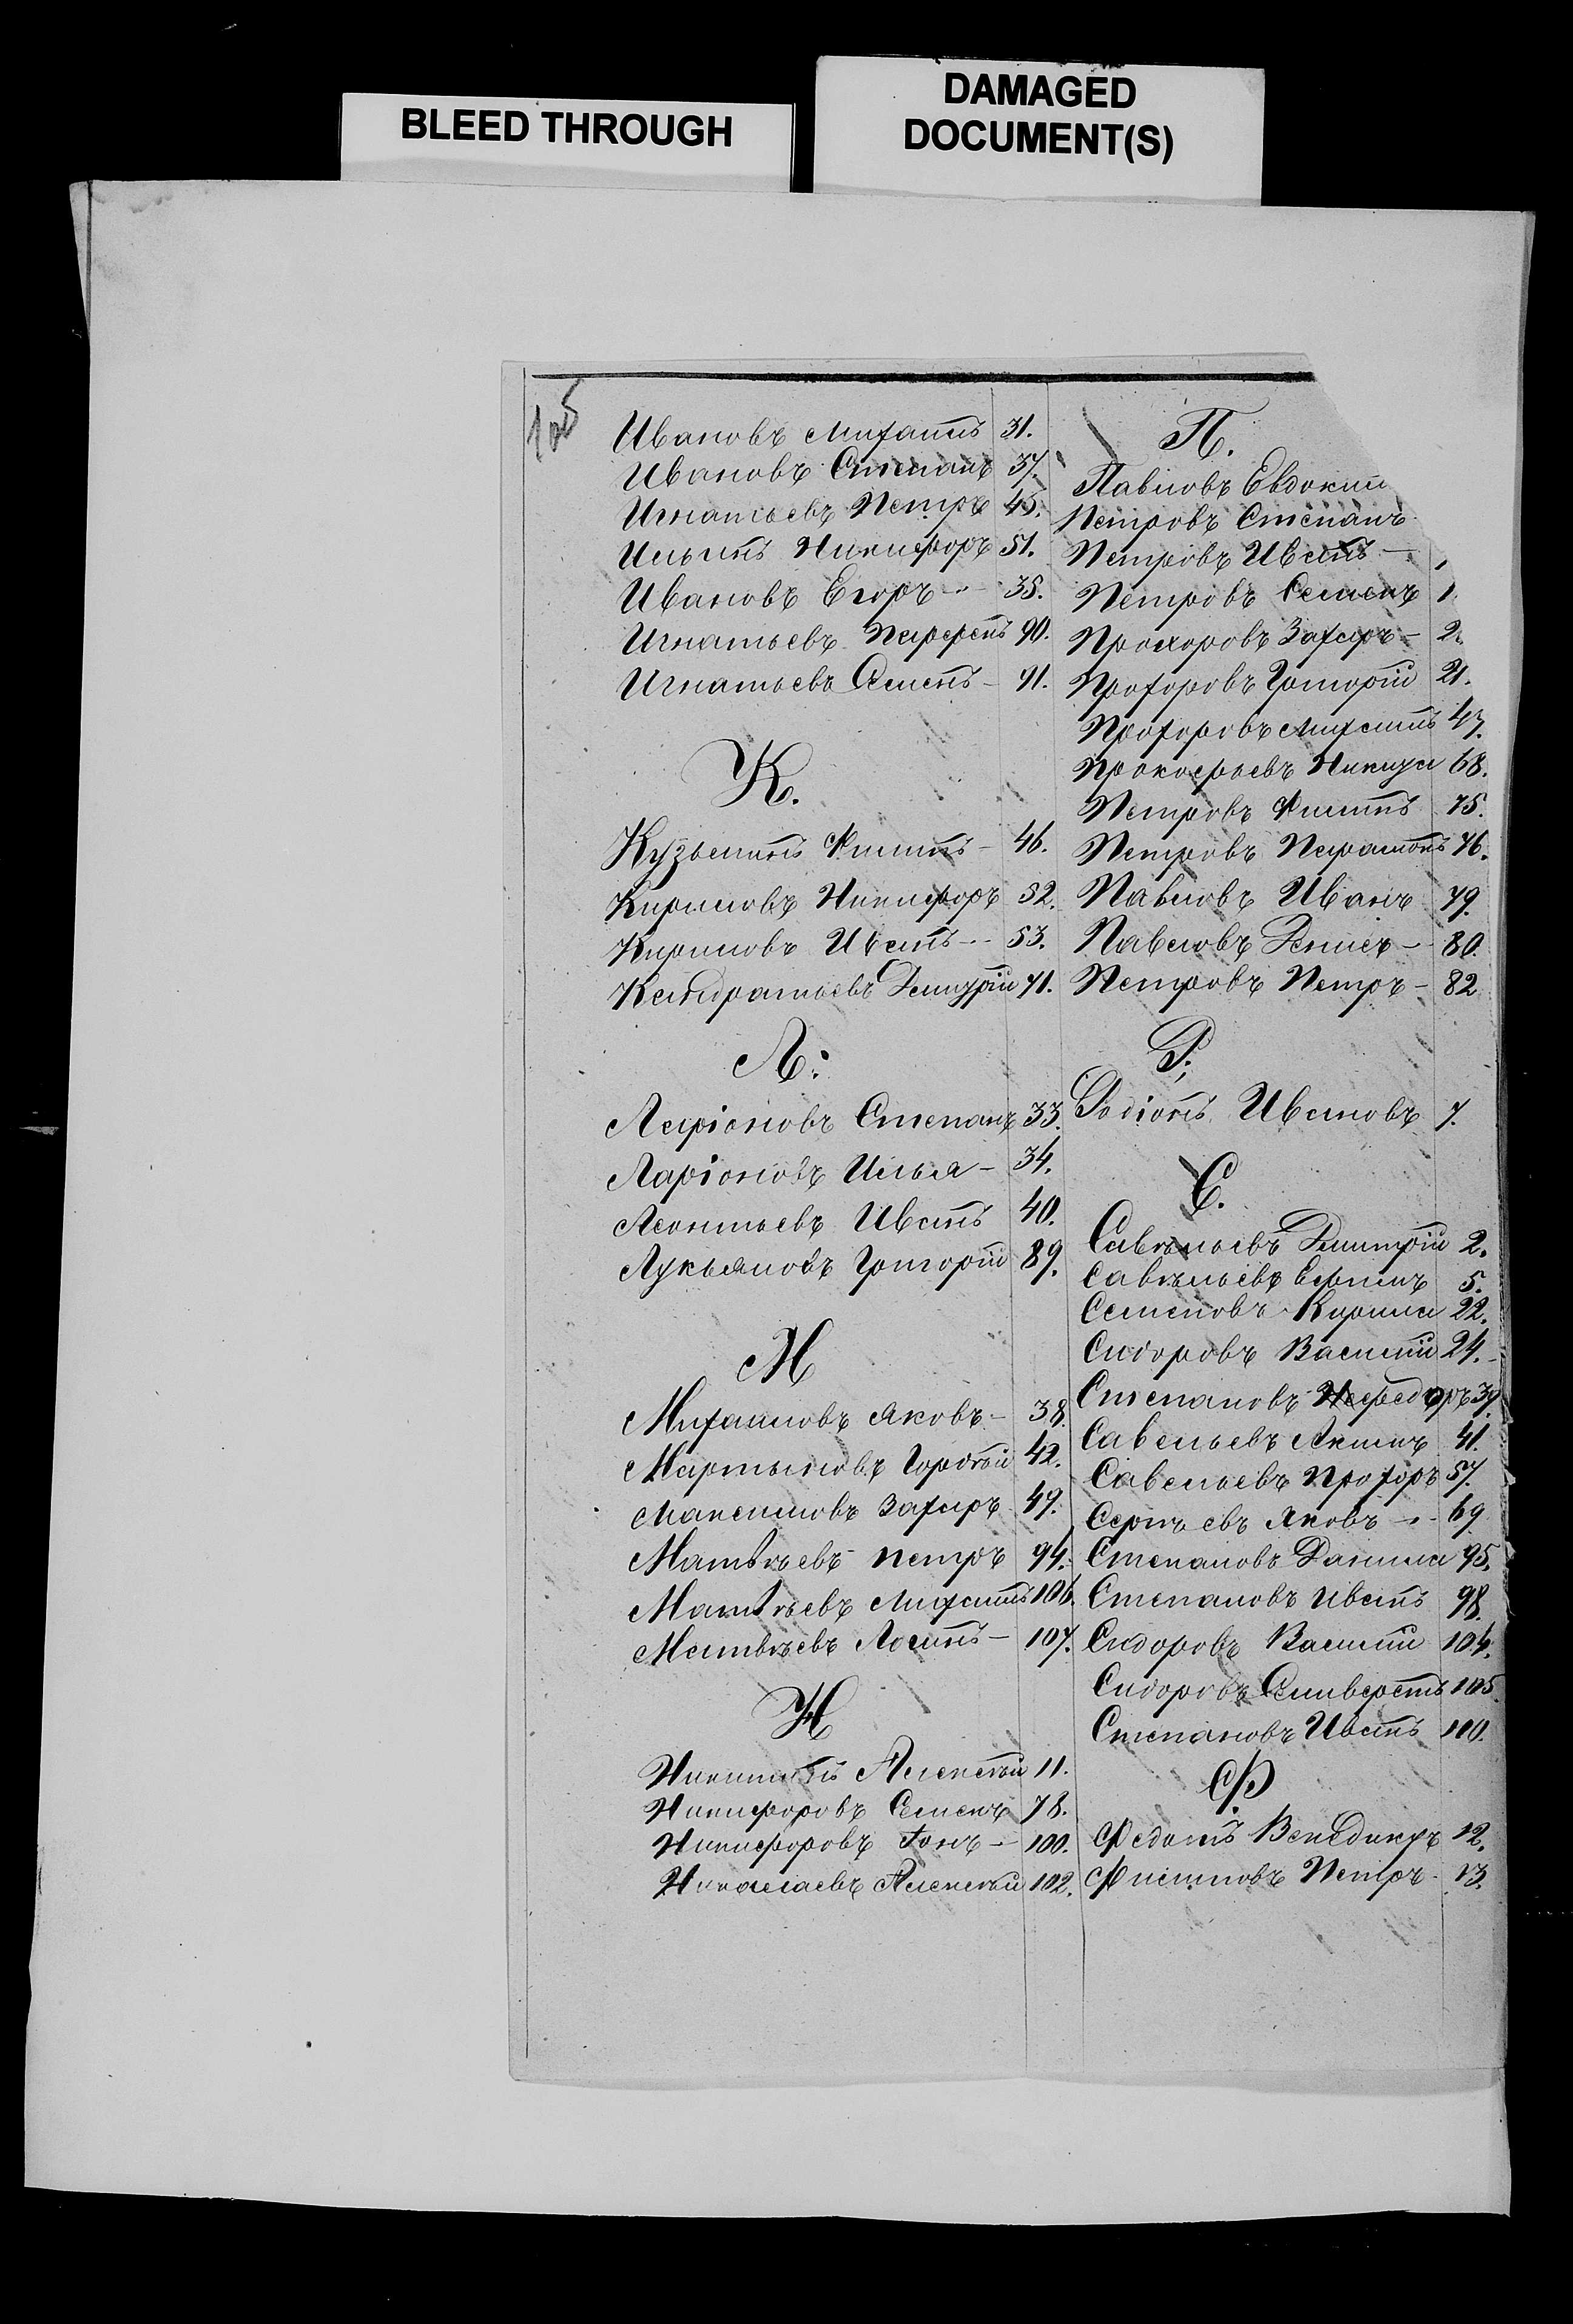 BLEED THROUGH
DAMAGED
DOCUMENT(S)
Ивановъ Михаилъ 31.
Ивановъ Степанъ 37.
Игнатьевъ Петръ 45.
Ильинъ Никифоръ 51.
Ивановъ Егоръ - 35.
Игнатьевъ 90.
Игнатьевъ Семенъ - 91.
К.
Кузьминъ Филипъ - 46.
Кириловъ Никифоръ 52.
Кириловъ Иванъ - 53.
Кандратьевъ Димитрій 71.
Л.
Ларіоновъ Степанъ 33.
Ларіоновъ Илья - 34.
Леонтьевъ Иванъ 40.
Лукьяновъ Григорій 89.
М
Михаиловъ Яковъ - 38.
Мартыновъ Гордѣй 42.
Максимовъ Захаръ 49.
Матвѣевъ Петръ 94.
Матвѣевъ Михаилъ 106.
Матвѣевъ - 107.
Н
Никитинъ Алексѣй 11.
Никифоровъ Семенъ 78.
Никифоровъ - 100.
Николаевъ Алексѣй 102.
П.
Павловъ Евдоким
Петровъ Степанъ
Петровъ Иванъ -
Петровъ Семенъ 1
Прохоровъ Захаръ - 2
Прохоровъ Григорій 21.
Прохоровъ Михаилъ 47.
Прокофьевъ Никита 68.
Петровъ Филипъ 75.
Петровъ 76.
Павловъ Иванъ 79.
Павловъ Денисъ - 80.
Петровъ Петръ - 82
Р.
Родіонъ Ивановъ 7.
С.
Савельевъ Дмитрій 2.
Савельевъ 5.
Семеновъ Кирила 22.
Сидоровъ Василій 24.
Степановъ 39.
Савельевъ Акимъ 41.
Савельевъ Прохоръ 57.
Сергѣевъ Яковъ - 69
Степановъ Данила 95.
Степановъ Иванъ 98.
Сидоровъ Василій 104.
Сидоровъ Селиверстъ 105.
Степановъ Иванъ 110.
Ф.
Венедиктъ 12.
Филиповъ Петръ - 13.